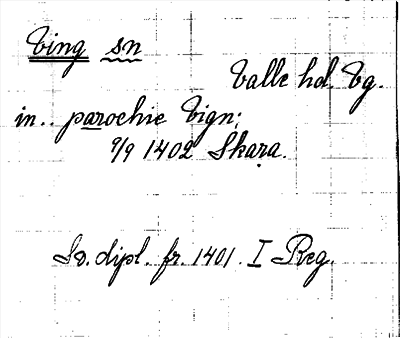 Ving sn
Valle hd. Vg.
in .. parochie Vign;
9/9 1402 Skara.
Sv. dipl. fr. 1401. I Reg.